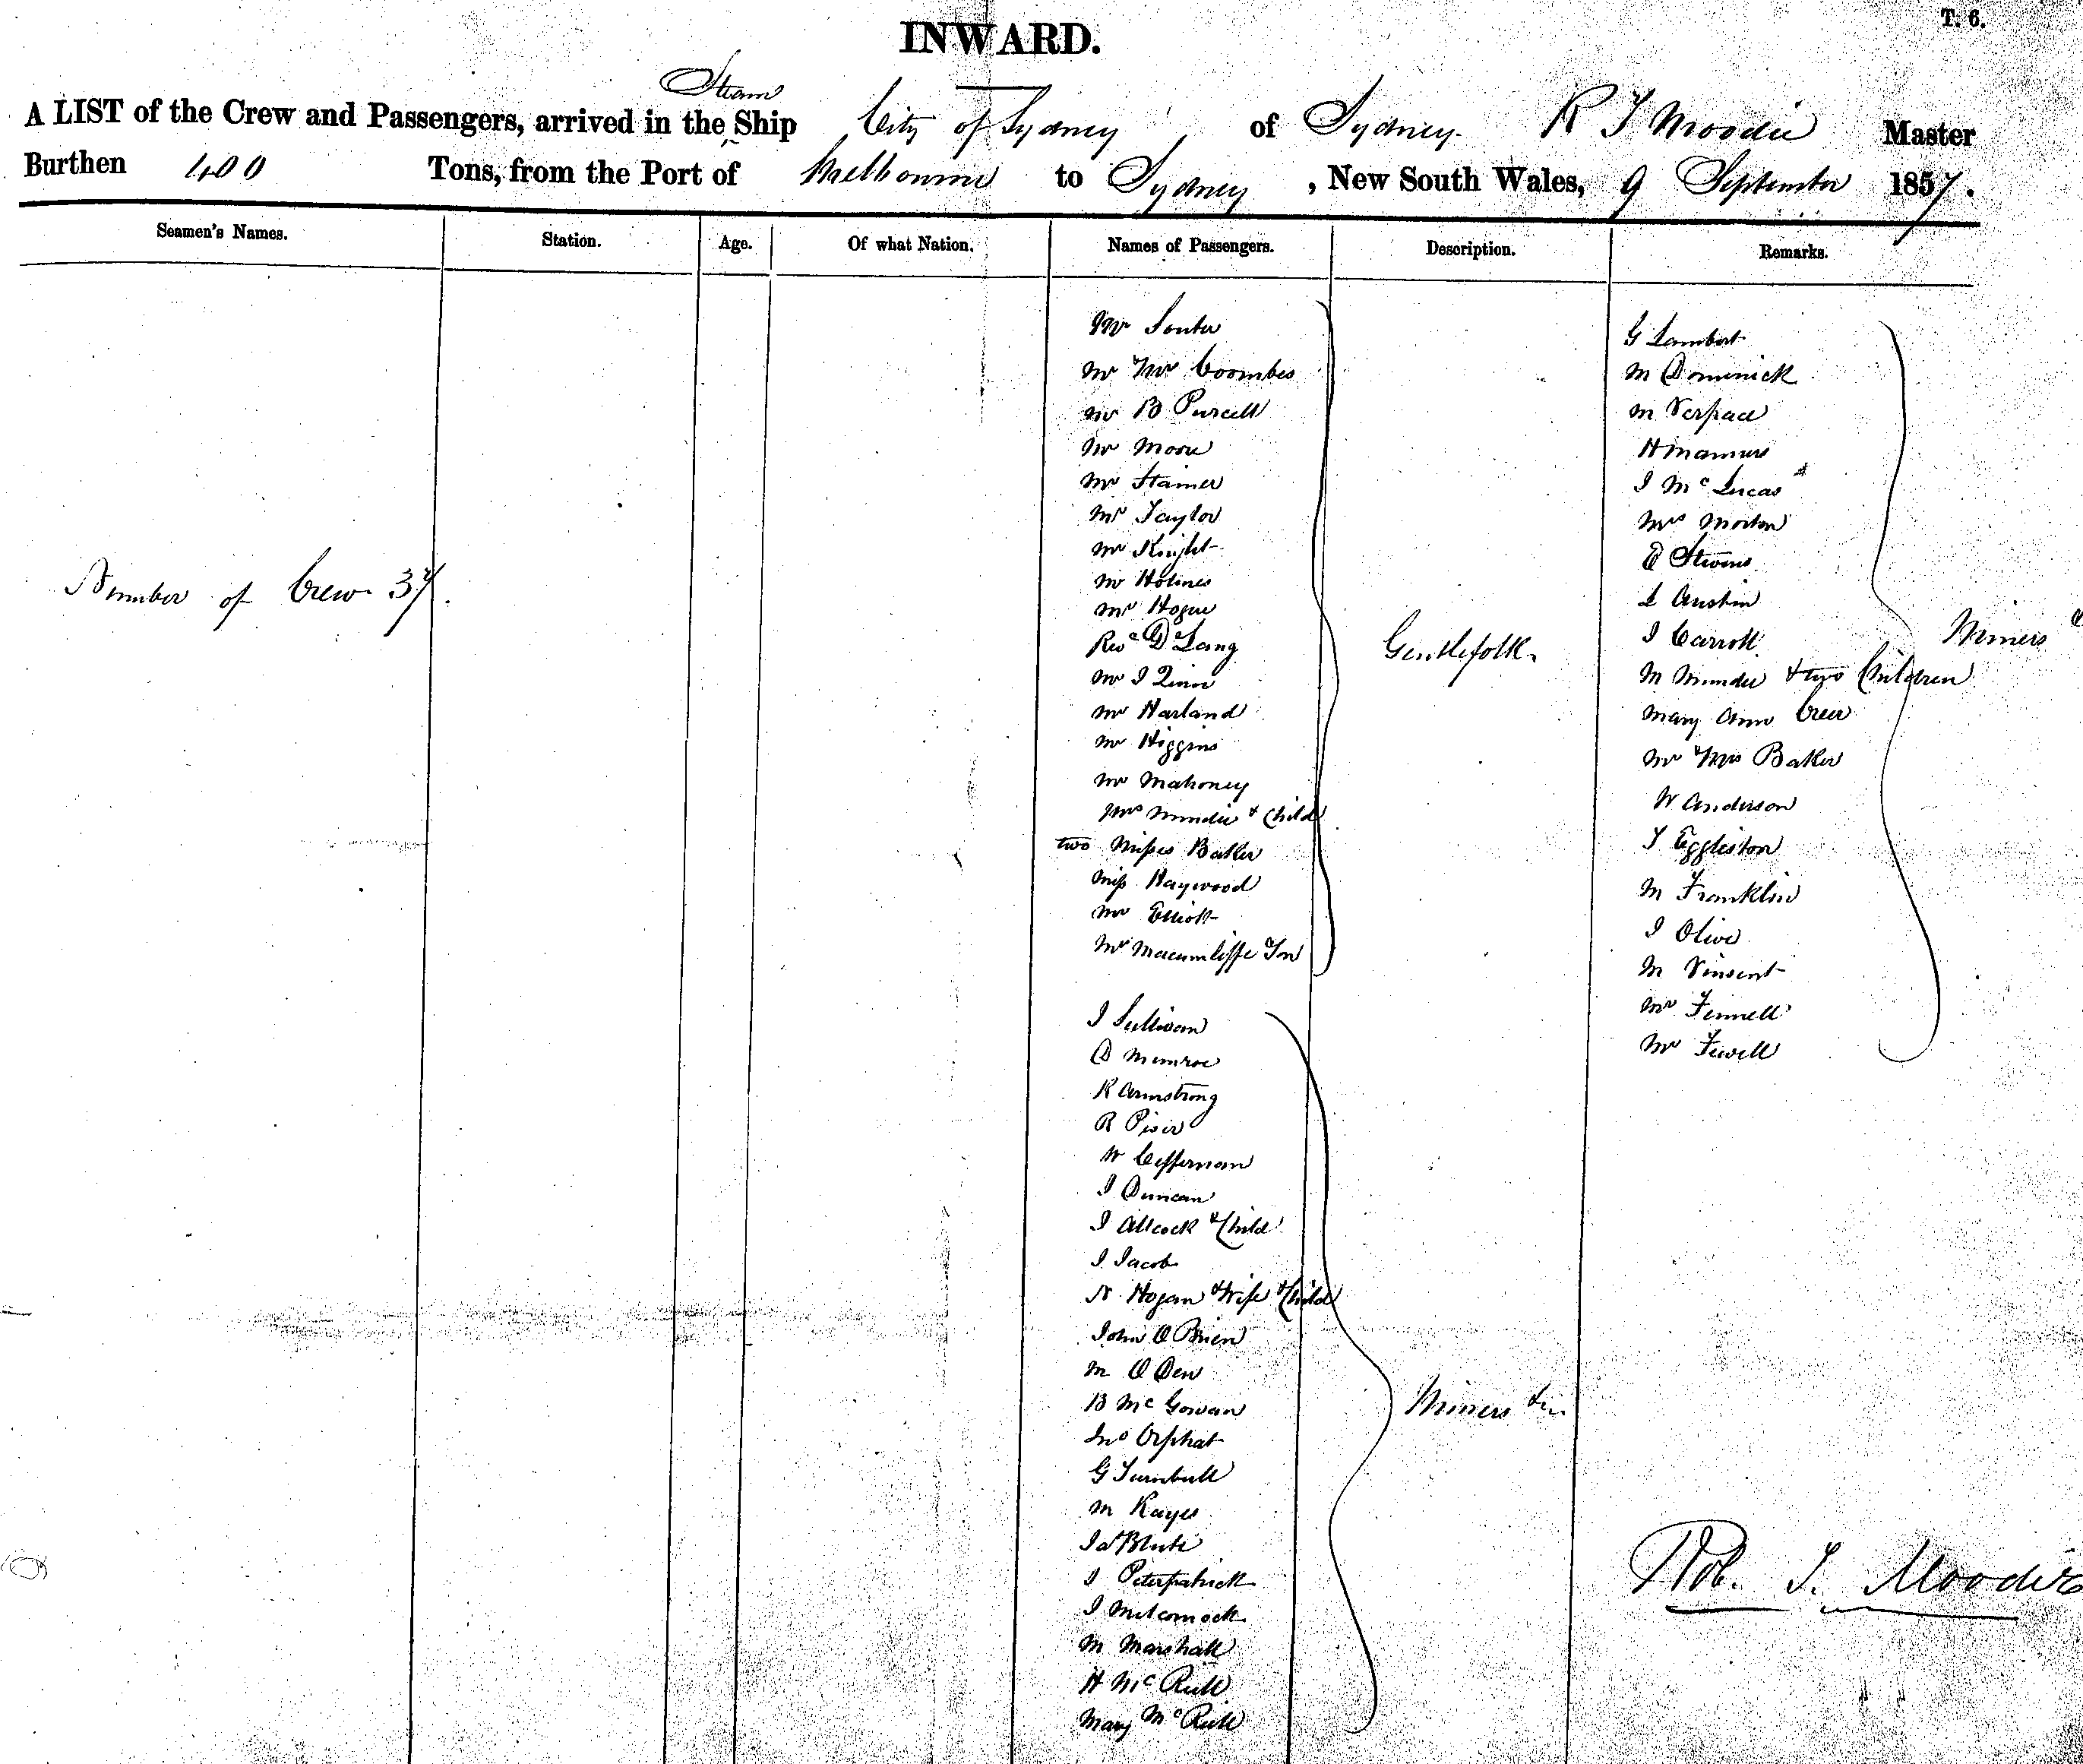 T. 6.
INWARD.
Steam
A LIST of the Crew and Passengers, arrived in the Ship City of Sydney of Sydney R T Moodie Master
Burthen 400 Tons, from the Port of Melbourne to Sydney, New South Wales, 9 September 1857.
Seamen's Names. Station. Age. Of what Nation. Names of Passengers. Description. Remarks.
Number of Crew 37.
Mr Souter
Mr & Mrs Coombes
Mr B Purcell
Mr Moore
Mr Stainer
Mr Taylor
Mr Knight
Mr Holmes
Mr Hogue
Revd Dr Lang
Mr J
Mr Harland
Mr Higgins
Mr Mahoney
Mrs & Child
two Misses Baker
Miss Haywood
Mr Elliott
Mr
Gentlefolk.
J Sullivan
D Munroe
R Armstrong
R
W
J Duncan
J Allcock & Child
J Jacob
N Hogan & Wife & Child
John O Brien
M O Dea
B Mc Gowan
Jno
G Turnbull
M Kayes
Jas
J
J
M Marshall
H Mc
Mary Mc
Miners &c.
G Lambert
M Dominick
M
H Manners
J Mc Lucas
Mrs Morton
E Stevens
L Austin
J Carroll
M & two Children
Mary Ann
Mr & Mrs Baker
W Anderson
T Eggliston
M Franklin
J Olive
M Vinsent
Mr Fennell
Mr Fewell
Miners &
Rob. T. Moodie